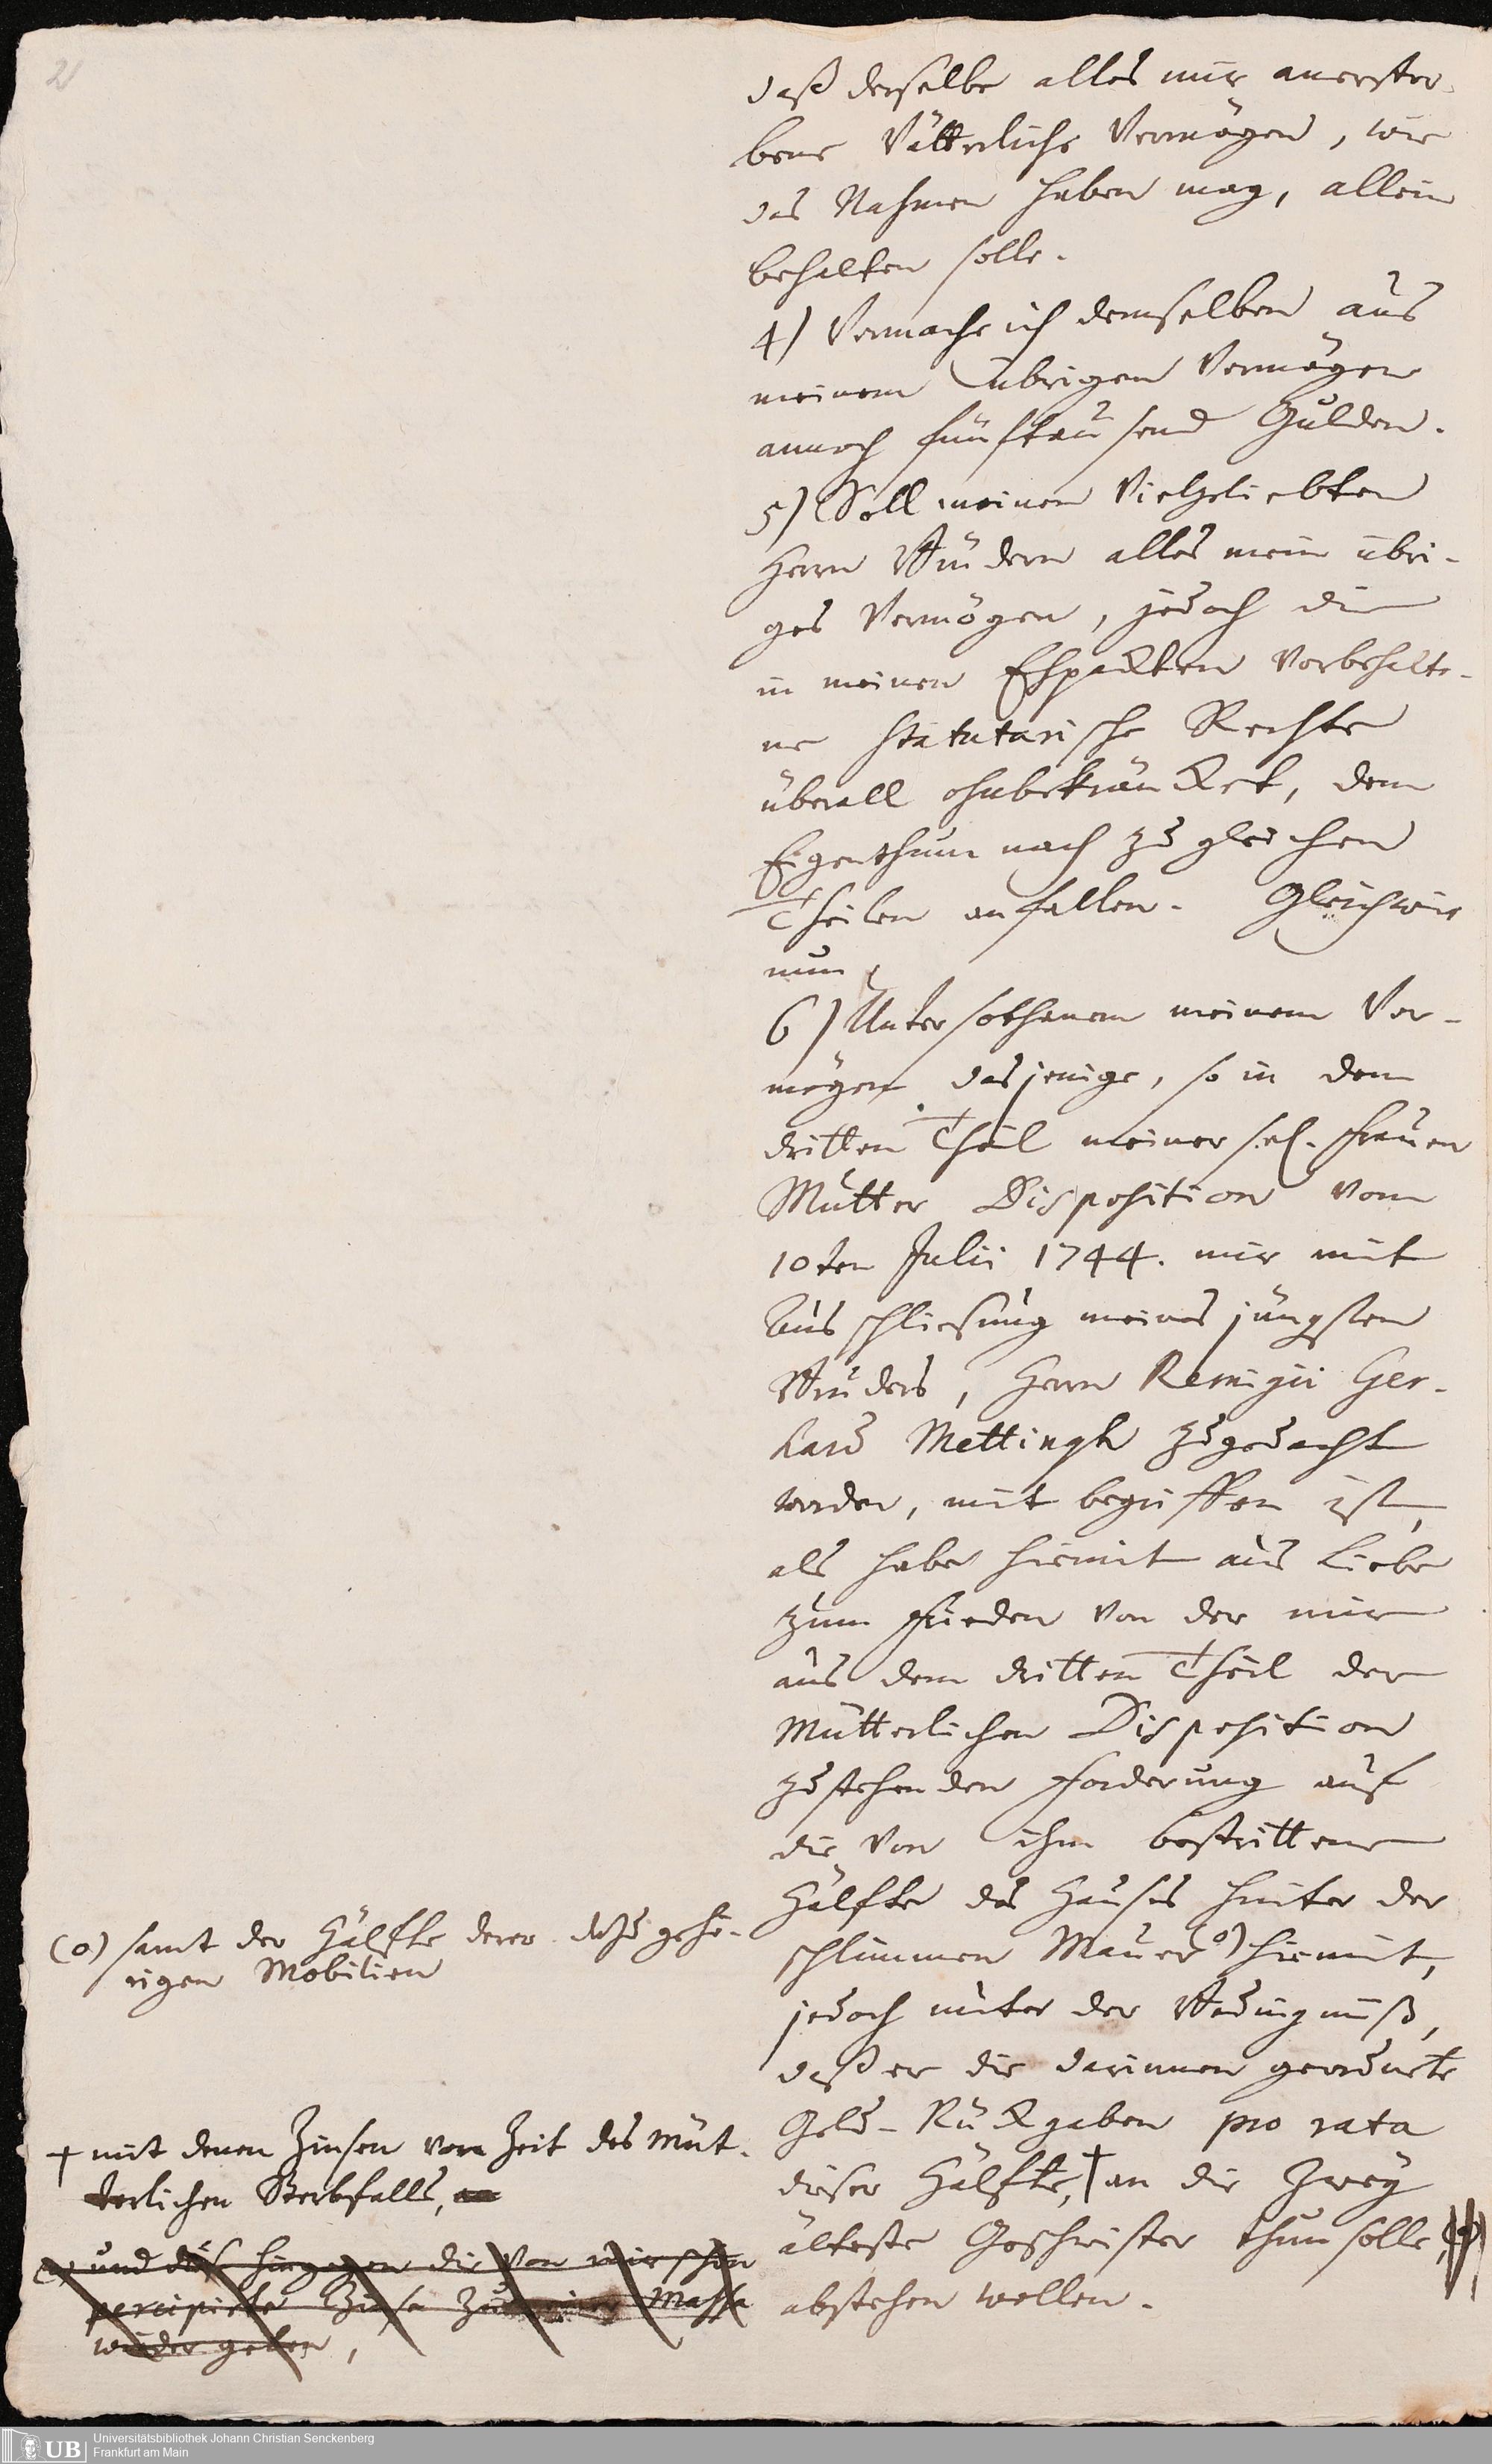 2
daß derselbe alles mir anerstor-
bene Vätterliche Vermögen, wie
das Nahmen haben mag, allein
behalten solle.
4) Vermache ich demselben aus
meinem übrigen Vermögen
annoch fünftausend Gulden.
5) Soll meinen Vielgeliebten
Herrn Brüdern alles mein übri-
ges Vermögen, jedoch die
in meinen Ehpackten Vorbehalte-
ne Statutarische Rechte
überall ohnbekräncket, dem
Eigenthum nach zu gleichen
Theilen anfallen. Gleichwie
nun
6) Unter sothanem meinem Ver-
mögen dasjenige, so in dem
dritten Theil meiner sel. Frauen
Mutter Disposition vom
10ten Julii 1744. mir mit
Ausschliesung meines jüngsten
Bruders, Herrn Remigii Ger-
hard Mettingh zugedacht
worden, mit begriffen ist,
als habe hiemit aus Liebe
zum Frieden von der mir
aus dem dritten Theil der
Mütterlichen Disposition
zustehenden Forderung auf
die von ihm bestrittene
Hälfte des Hauses hinter der
schlimmen Mauer o) hiemit,
jedoch unter der Bedingnuß,
daß er die darinnen geordnete
Geld-Rückgaben pro rata
dieser Hälfte, † an die Zwey
älteste Geschwister thun solle,
abstehen wollen.
(o) samt der Hälfte derer dazu gehö-
rigen Mobilien
† mit denen Zinsen von Zeit des Müt-
terlichen Sterbfalls,
und hingegen die von mir schon
percipirte Zinse zu meiner Massa
wieder geben,
UB Universitätsbibliothek Johann Christian Senckenberg
Frankfurt am Main